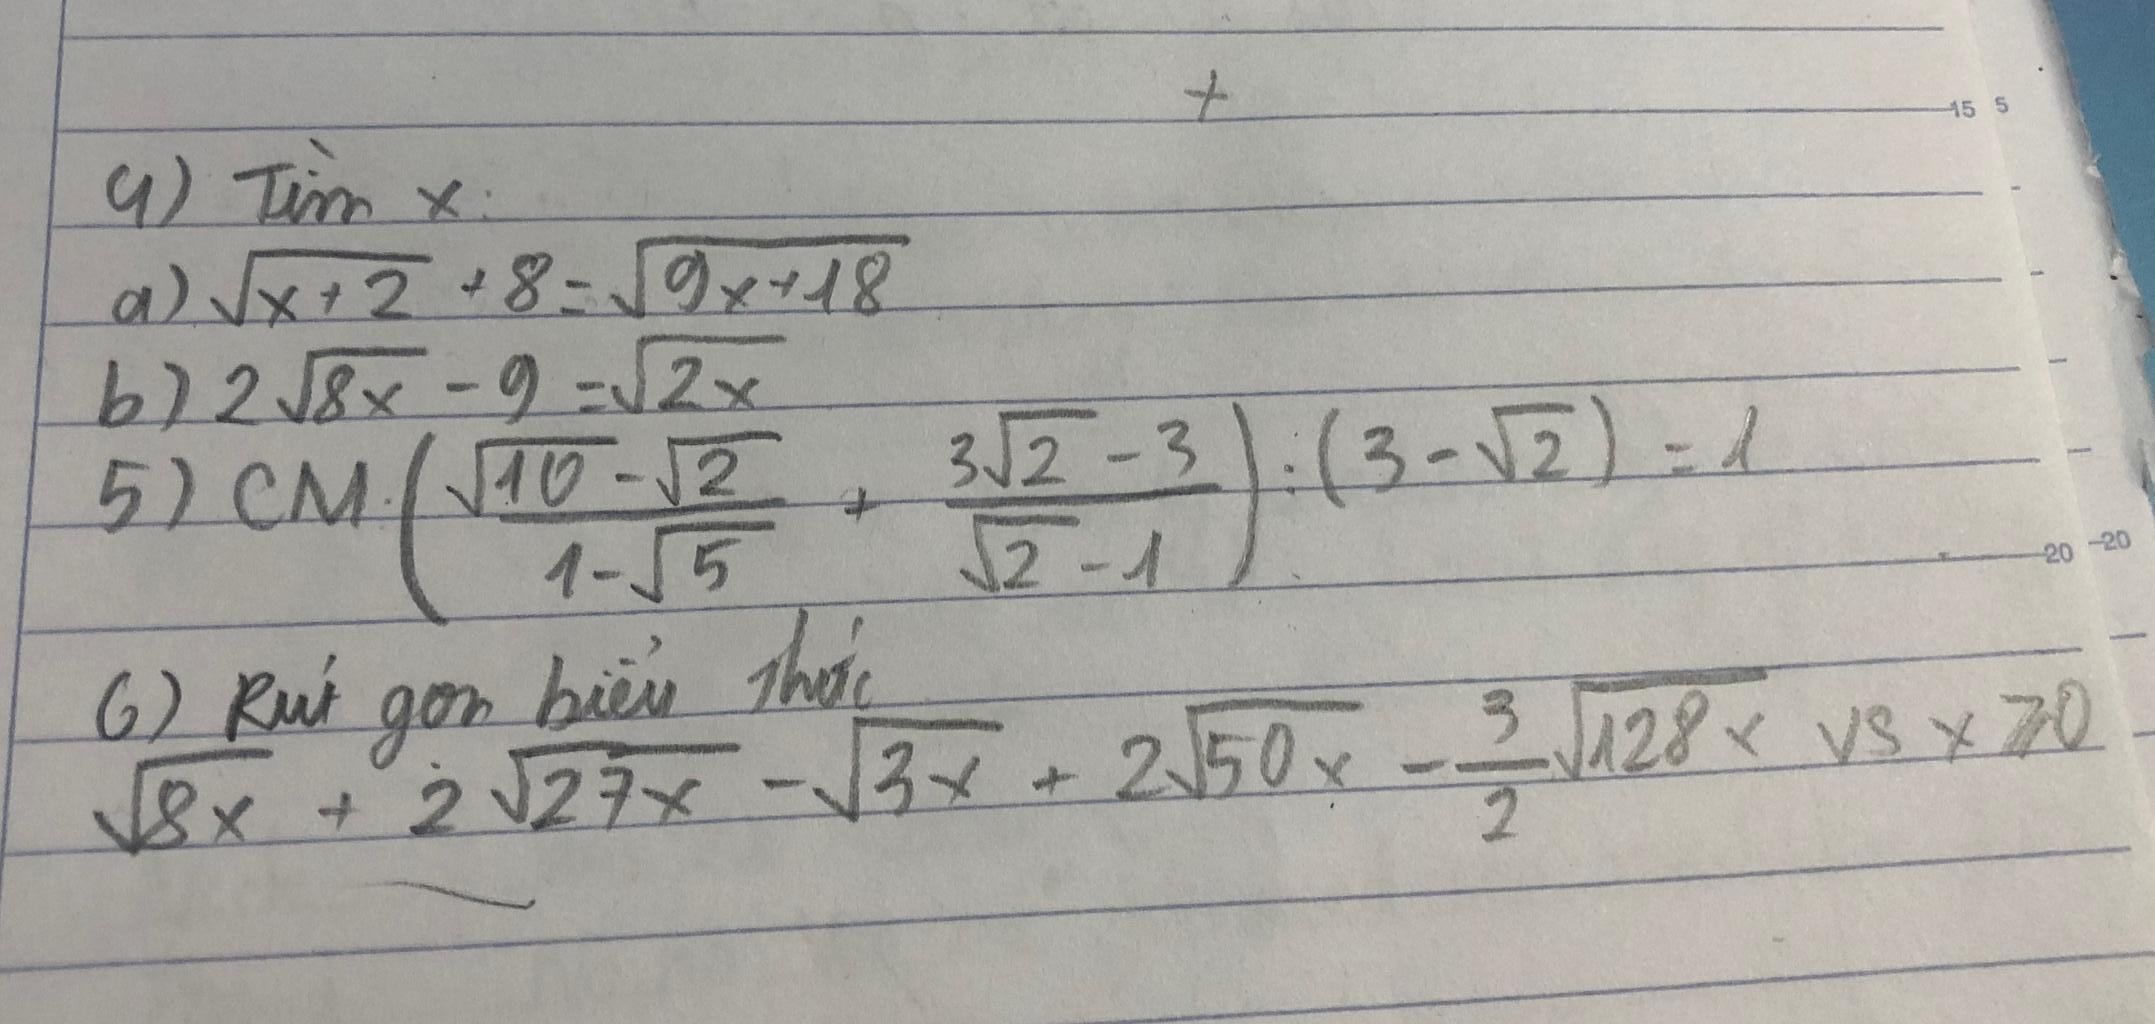 +
15 5
4) Tìm x:
a) √(x+2) + 8 = √(9x+18)
b) 2√(8x) - 9 = √(2x)
5) CM. ( (√10 - √2)/(1 - √5) + (3√2 - 3)/(√2 - 1) ) : (3 - √2) = 1
20 20
6) Rút gọn biểu thức
√(8x) + 2√(27x) - √(3x) + 2√(50x) - 3/2 √(128x) vs x ≥ 0